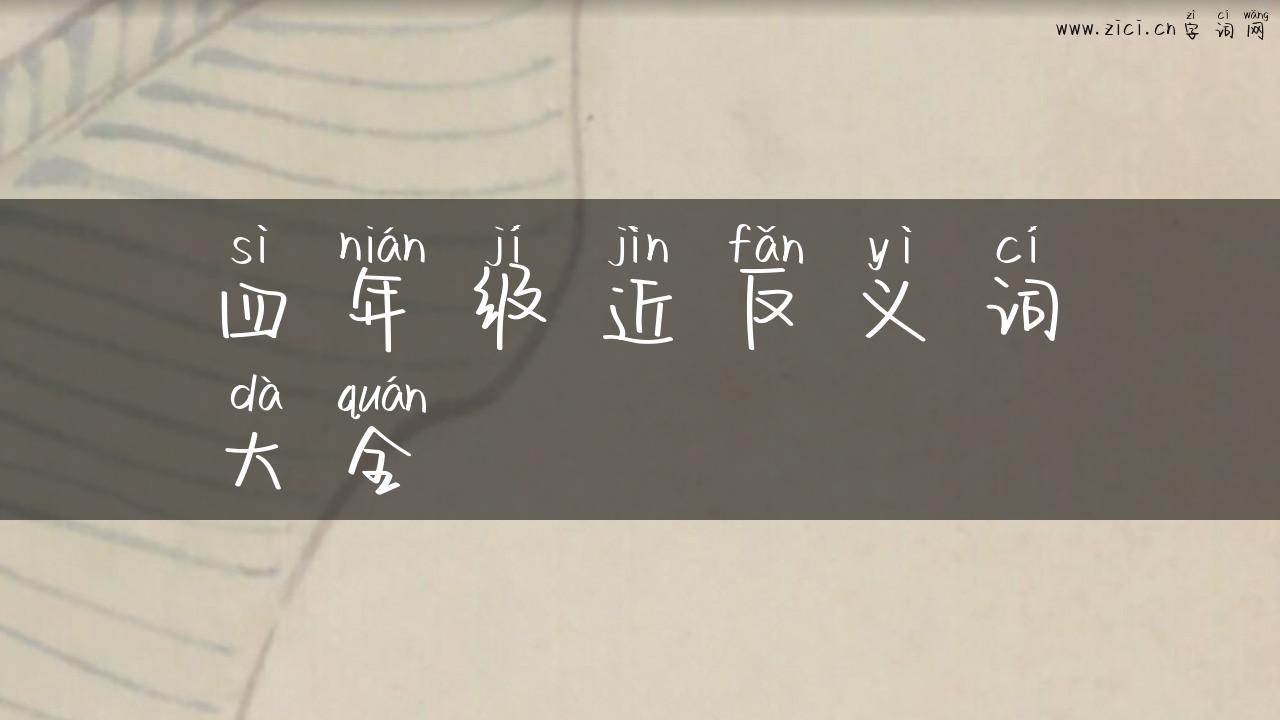 zì cí wǎng
www.zici.cn 字词网
sì nián jí jìn fǎn yì cí
四年级近反义词
dà quán
大全